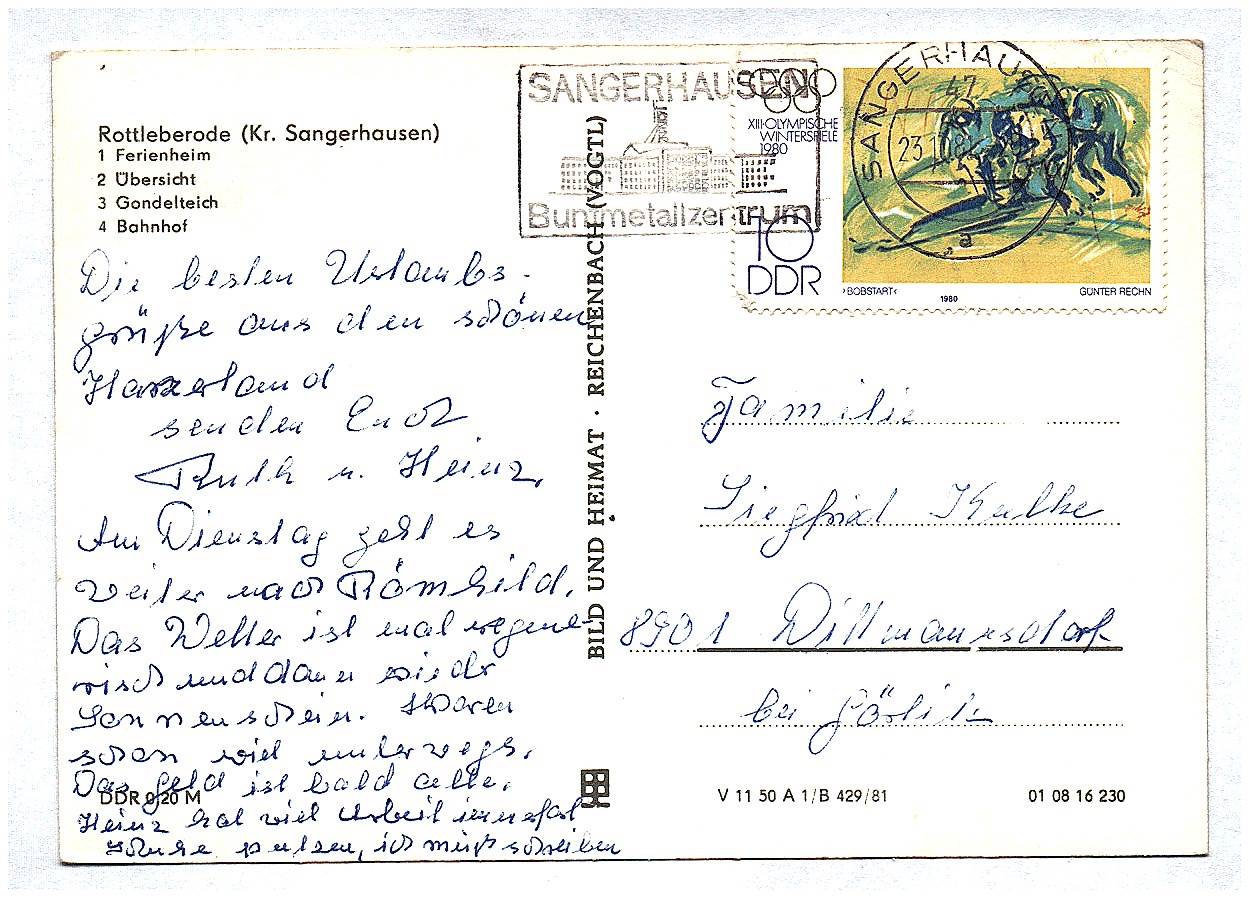 Rottleberode (Kr. Sangerhausen)
1 Ferienheim
2 Übersicht
3 Gondelteich
4 Bahnhof
Die besten Urlaubs-
grüße aus den schönen
Harzerland
senden Euch
Ruth u. Heinz.
Am Dienstag geht es
weiter nach Römhild.
Das Wetter ist mal regne-
risch und dann wieder
Sonnenschein. Waren
schon viel unterwegs.
Das Geld ist bald alle.
Heinz hat viel Arbeit
Schuhe putzen, ich muß schreiben
DDR 0,20 M
BILD UND HEIMAT · REICHENBACH (VOGTL)
SANGERHAUSEN
Buntmetallzentrum
XIII·OLYMPISCHE
WINTERSPIELE
1980
10
DDR
›BOBSTART‹
1980
GÜNTER RECHN
SANGERHAUSEN
47
23.
a
Familie
Siegfried Kulke
8901 Dittmannsdorf
bei Görlitz
V 11 50 A 1/B 429/81
01 08 16 230